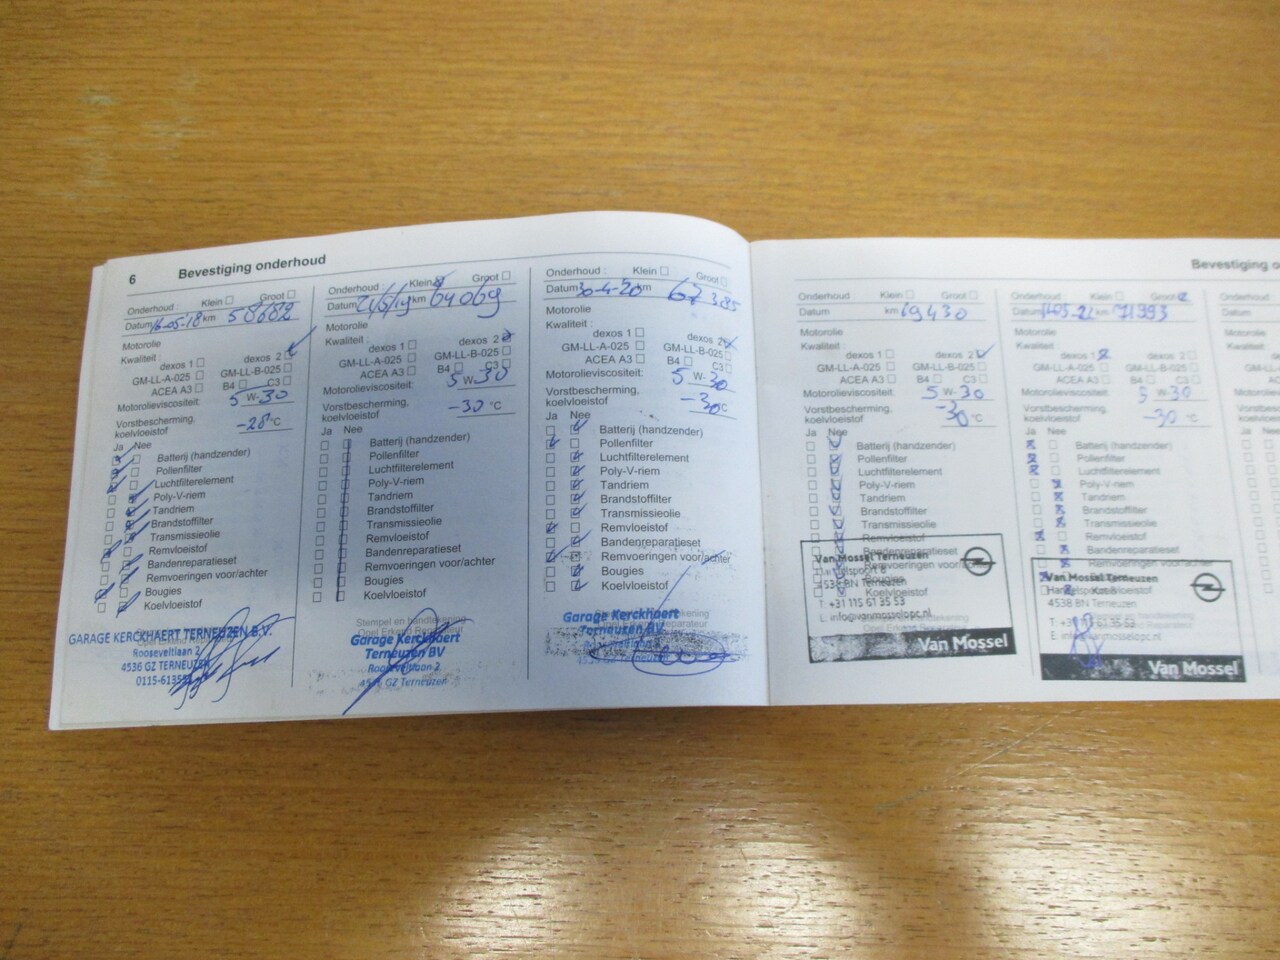 6 Bevestiging onderhoud
Onderhoud Klein Groot
Datum 16-05-18 km 58682
Motorolie
Kwaliteit :
dexos 1 dexos 2
GM-LL-A-025 GM-LL-B-025
ACEA A3 B4 C3
Motorolieviscositeit: 5 W-30
Vorstbescherming,
koelvloeistof -28 °C
Ja Nee
Batterij (handzender)
Pollenfilter
Luchtfilterelement
Poly-V-riem
Tandriem
Brandstoffilter
Transmissieolie
Remvloeistof
Bandenreparatieset
Remvoeringen voor/achter
Bougies
Koelvloeistof
GARAGE KERCKHAERT TERNEUZEN B.V.
Rooseveltlaan 2
4536 GZ TERNEUZEN
Onderhoud : Klein Groot
Datum km 64069
Motorolie
Kwaliteit :
dexos 1 dexos 2
GM-LL-A-025 GM-LL-B-025
ACEA A3 B4 C3
Motorolieviscositeit: 5 W-30
Vorstbescherming,
koelvloeistof -30 °C
Ja Nee
Batterij (handzender)
Pollenfilter
Luchtfilterelement
Poly-V-riem
Tandriem
Brandstoffilter
Transmissieolie
Remvloeistof
Bandenreparatieset
Remvoeringen voor/achter
Bougies
Koelvloeistof
Stempel en handtekening
Garage Kerckhaert
Terneuzen BV
Rooseveltlaan 2
4536 GZ Terneuzen
Onderhoud : Klein Groot
Datum 30-4-20 km 67385
Motorolie
Kwaliteit :
dexos 1 dexos 2
GM-LL-A-025 GM-LL-B-025
ACEA A3 B4 C3
Motorolieviscositeit: 5 W-30
Vorstbescherming,
koelvloeistof -30 °C
Ja Nee
Batterij (handzender)
Pollenfilter
Luchtfilterelement
Poly-V-riem
Tandriem
Brandstoffilter
Transmissieolie
Remvloeistof
Bandenreparatieset
Remvoeringen voor/achter
Bougies
Koelvloeistof
Garage Kerckhaert
Terneuzen BV
Bevestiging
Onderhoud : Klein Groot
Datum km 69430
Motorolie
Kwaliteit :
dexos 1 dexos 2
GM-LL-A-025 GM-LL-B-025
ACEA A3 B4 C3
Motorolieviscositeit: 5 W-30
Vorstbescherming,
koelvloeistof -30 °C
Ja Nee
Batterij (handzender)
Pollenfilter
Luchtfilterelement
Poly-V-riem
Tandriem
Brandstoffilter
Transmissieolie
Remvloeistof
Bandenreparatieset
Remvoeringen voor/achter
Bougies
Koelvloeistof
Van Mossel Terneuzen
4538 BN Terneuzen
T: +31 115 61 35 53
E: info@vanmosselopc.nl
Van Mossel
Onderhoud : Klein Groot
Datum km 71993
Motorolie
Kwaliteit :
dexos 1 dexos 2
GM-LL-A-025 GM-LL-B-025
ACEA A3 B4 C3
Motorolieviscositeit: 5 W-30
Vorstbescherming,
koelvloeistof -30 °C
Ja Nee
Batterij (handzender)
Pollenfilter
Luchtfilterelement
Poly-V-riem
Tandriem
Brandstoffilter
Transmissieolie
Remvloeistof
Bandenreparatieset
Van Mossel Terneuzen
4538 BN Terneuzen
Van Mossel